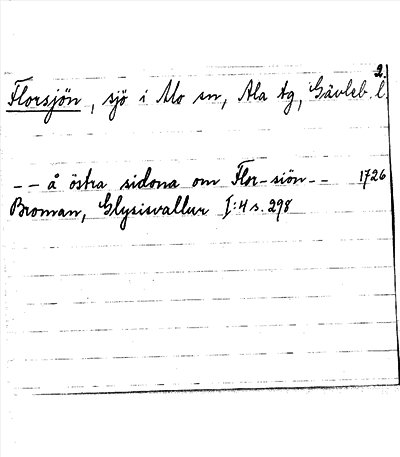 2.
Florsjön, sjö i Alo sn, Ala tg, Gävleb. l.
-- å östra sidona om Flor-siön-- 1726
Broman, Glysisvallur I:4 s. 298